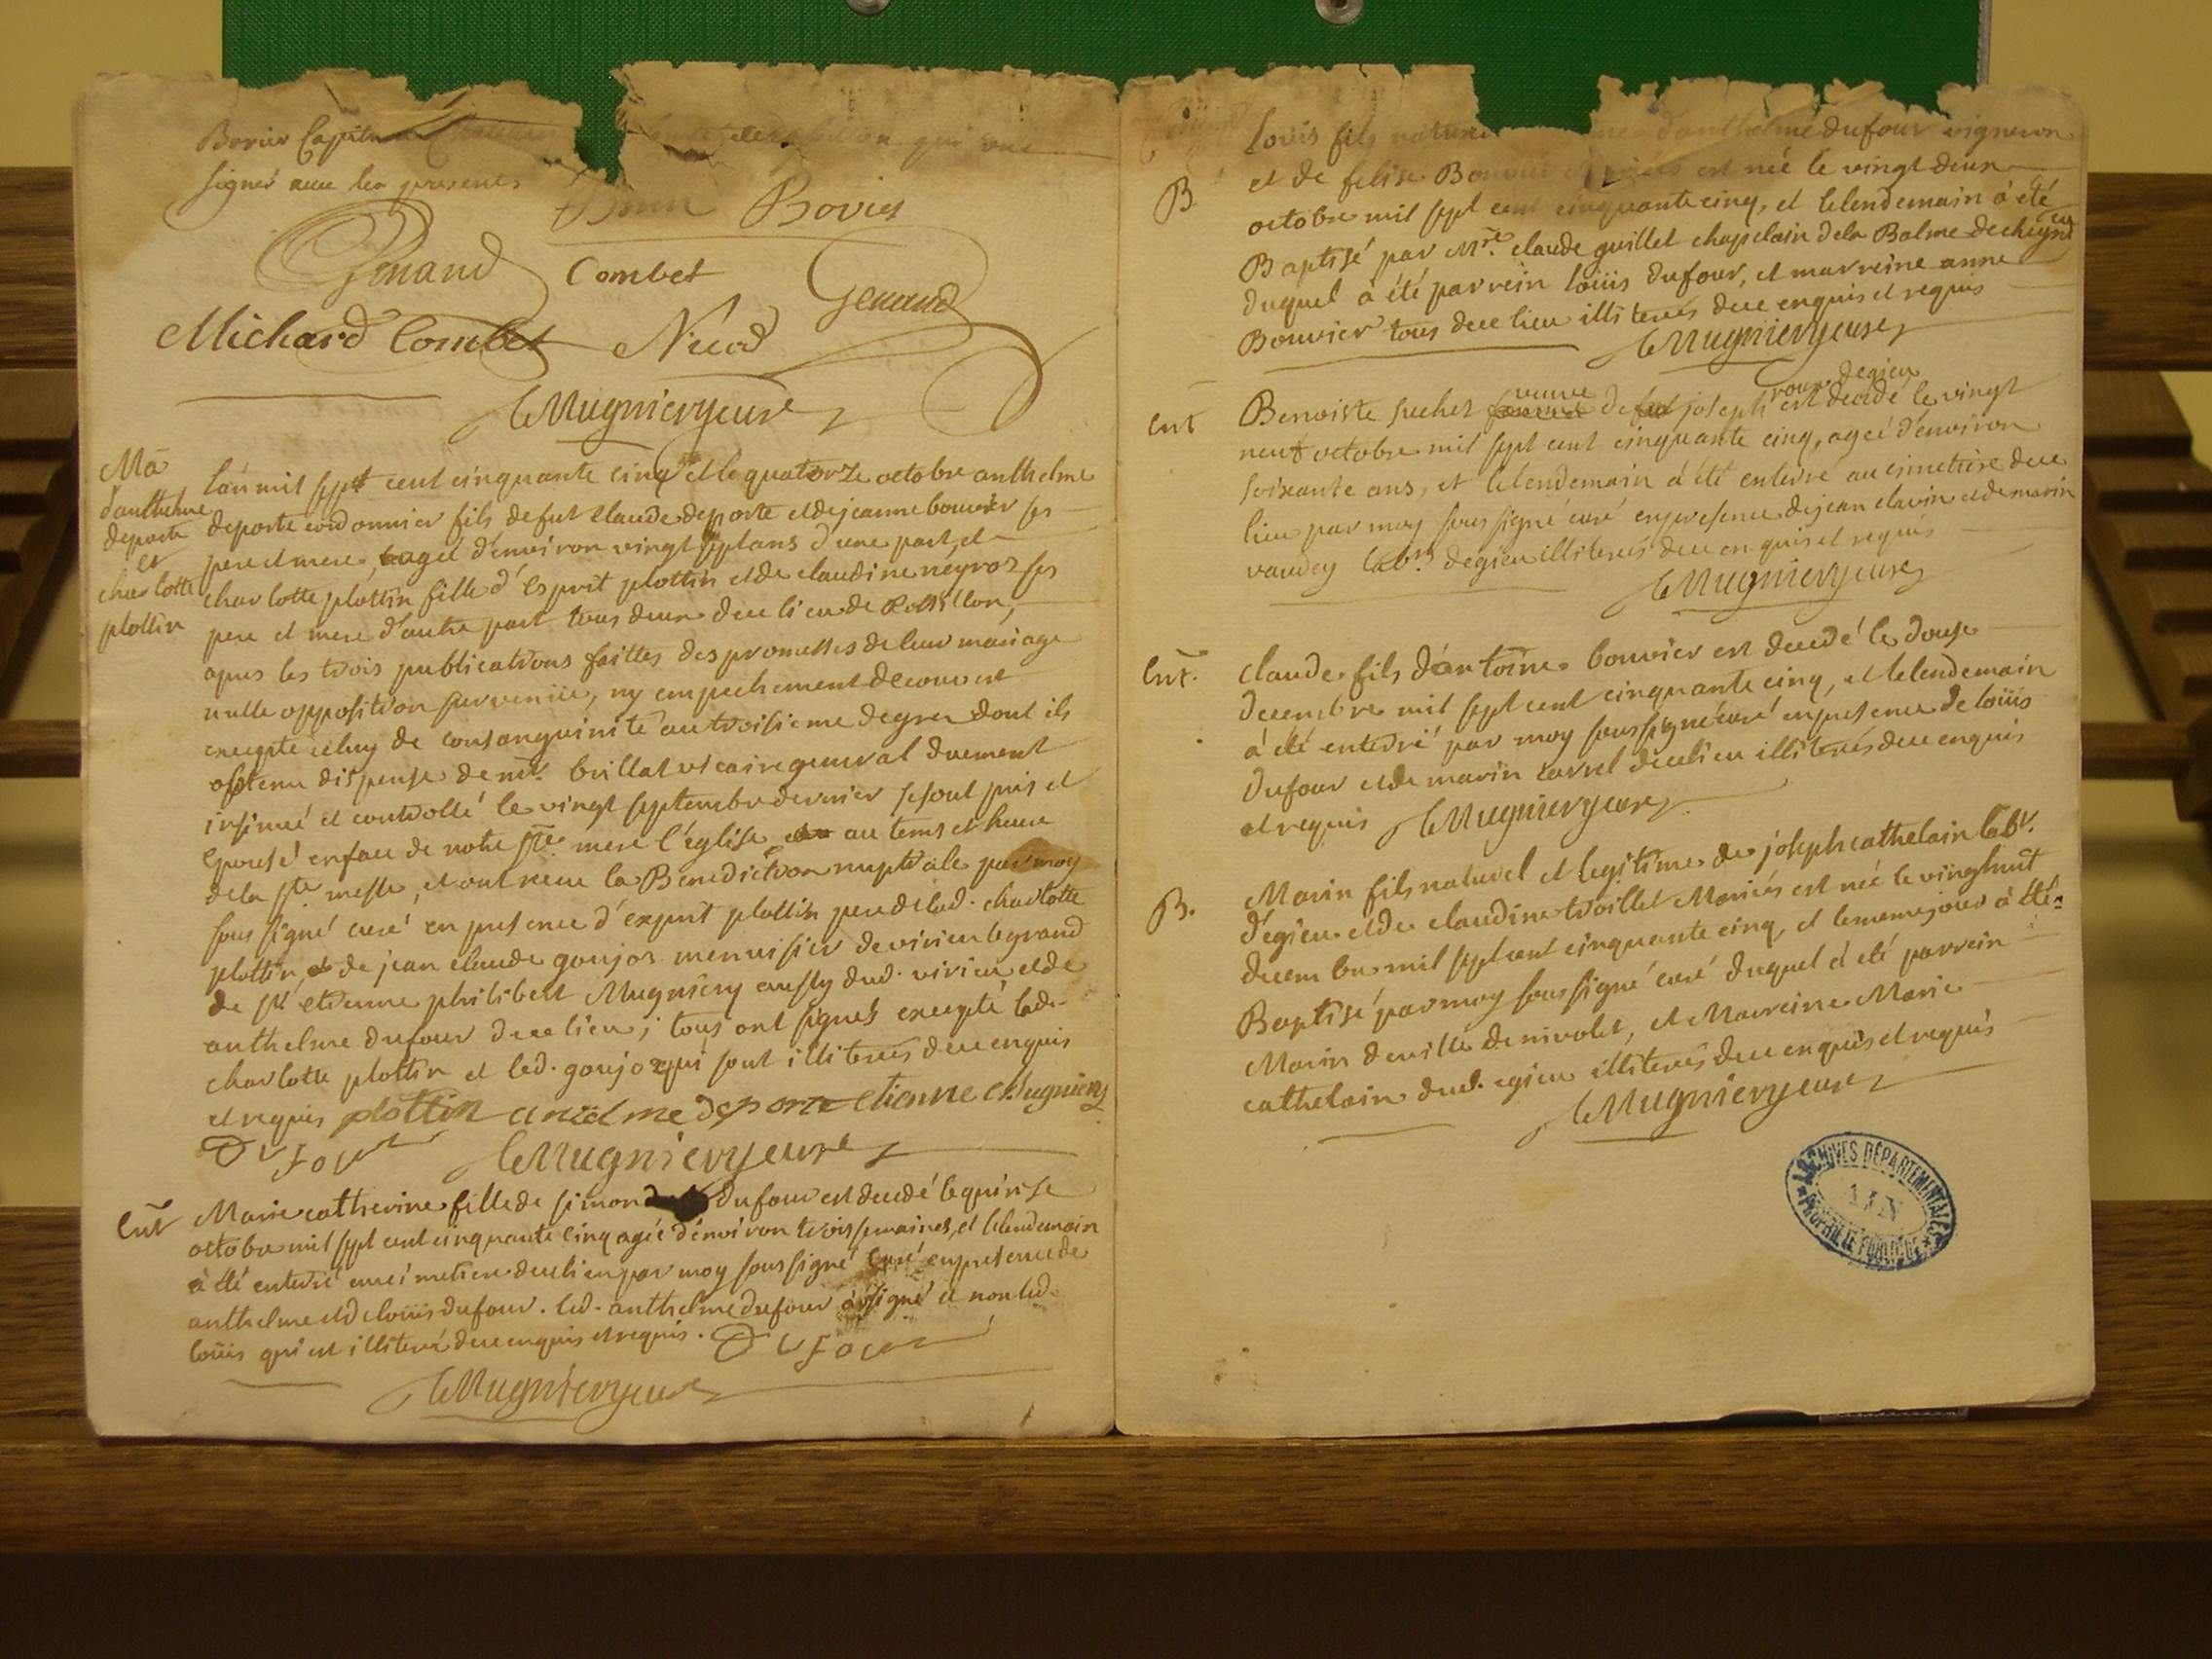 Bovier Capit
signé avec les presents
Bovier
Genand Combet Genand
Michard Combet Nicod
C Mugniery curé
Ma
d'anthelme
deporte
et
charlotte
plottin
l'an mil sept cent cinquante cinq et le quatorze octobre anthelme
deporte cordonnier fils de fut Claude deporte et de jeanne bouvier ses
pere et mere, agé d'environ vingt sept ans d'une part, et
charlotte plottin fille d'Esprit plottin et de claudine neyroz ses
pere et mere d'autre part tous deux de ce lieu de Rossillon,
apres les trois publications faittes des promesses de leur mariage
nulle opposition survenüe, ny empechement decouvert
excepté celuy de consanguinité au troisieme degrez dont ils
obtenu dispense de mr. brillat vicaire general duement
insinué et controllé le vingt septembre dernier se sont pris et
epousé en face de notre ste mere l'église au tems et heure
de la ste messe, et ont receu la Benediction nuptiale par moy
sous signé curé en presence d'exprit plottin pere de lad. charlotte
plottin de jean claude goujoz menuisier de virieu le grand
de sr. etienne philibert Mugniery aussy dud. virieu et de
anthelme dufour de ce lieu; tous ont signés excepté lad.
charlotte plottin et led. goujoz qui sont illiterés de ce enquis
et requis plottin anthelme deporte etienne Mugniery
Dufour C Mugniery curé
Ent
Marie catherine fille de simon dufour est decedé le quinse
octobre mil sept cent cinquante cinq agée d'environ trois semaines, et le lendemain
a été enterré au cimetiere de ce lieu par moy sous signé curé en presence de
anthelme et de loüis dufour. led. anthelme dufour a signé et non led.
loüis qui est illiteré de ce enquis et requis. Dufour
C Mugniery curé
B
loüis fils naturel d'anthelme dufour vigneron
et de felise Bouvier mariés est né le vingt deux
octobre mil sept cent cinquante cinq, et le lendemain à été
Baptisé par Mre. claude guillet chapelain de la Balme
duquel à été parrein loüis dufour, et marreine anne
Bouvier tous de ce lieu illiterés de ce enquis et requis
C Mugniery curé
Ent
Benoiste suchet veuve de joseph roux d'egieu est decedé le vingt
neuf octobre mil sept cent cinquante cinq, ageé d'environ
soixante ans, et le lendemain a été enterré au cimetiere de ce
lieu par moy sous signé curé en presence de jean clavin et de marin
vaudey labrs d'egieu illiterés de ce enquis et requis
C Mugniery curé
Ent.
claude fils d'antoine bouvier est decedé le douse
decembre mil sept cent cinquante cinq, et le lendemain
à été enterré par moy sous signé curé en presence de loüis
dufour et de marin carrel de ce lieu illiterés de ce enquis
et requis C Mugniery curé
B.
Marin fils naturel et legitime de joseph cathelain labr.
d'egieu et de claudine troillet Mariés est né le vingt huit
decembre mil sept cent cinquante cinq, et le meme jour à été
Baptisé par moy sous signé curé duquel à été parrein
Marin deville de nivolet, et Marreine Marie
cathelain dud. egieu illiterés de ce enquis et requis
C Mugniery curé
ARCHIVES DÉPARTEMENTALES
AIN
PROPRIÉTÉ PUBLIQUE